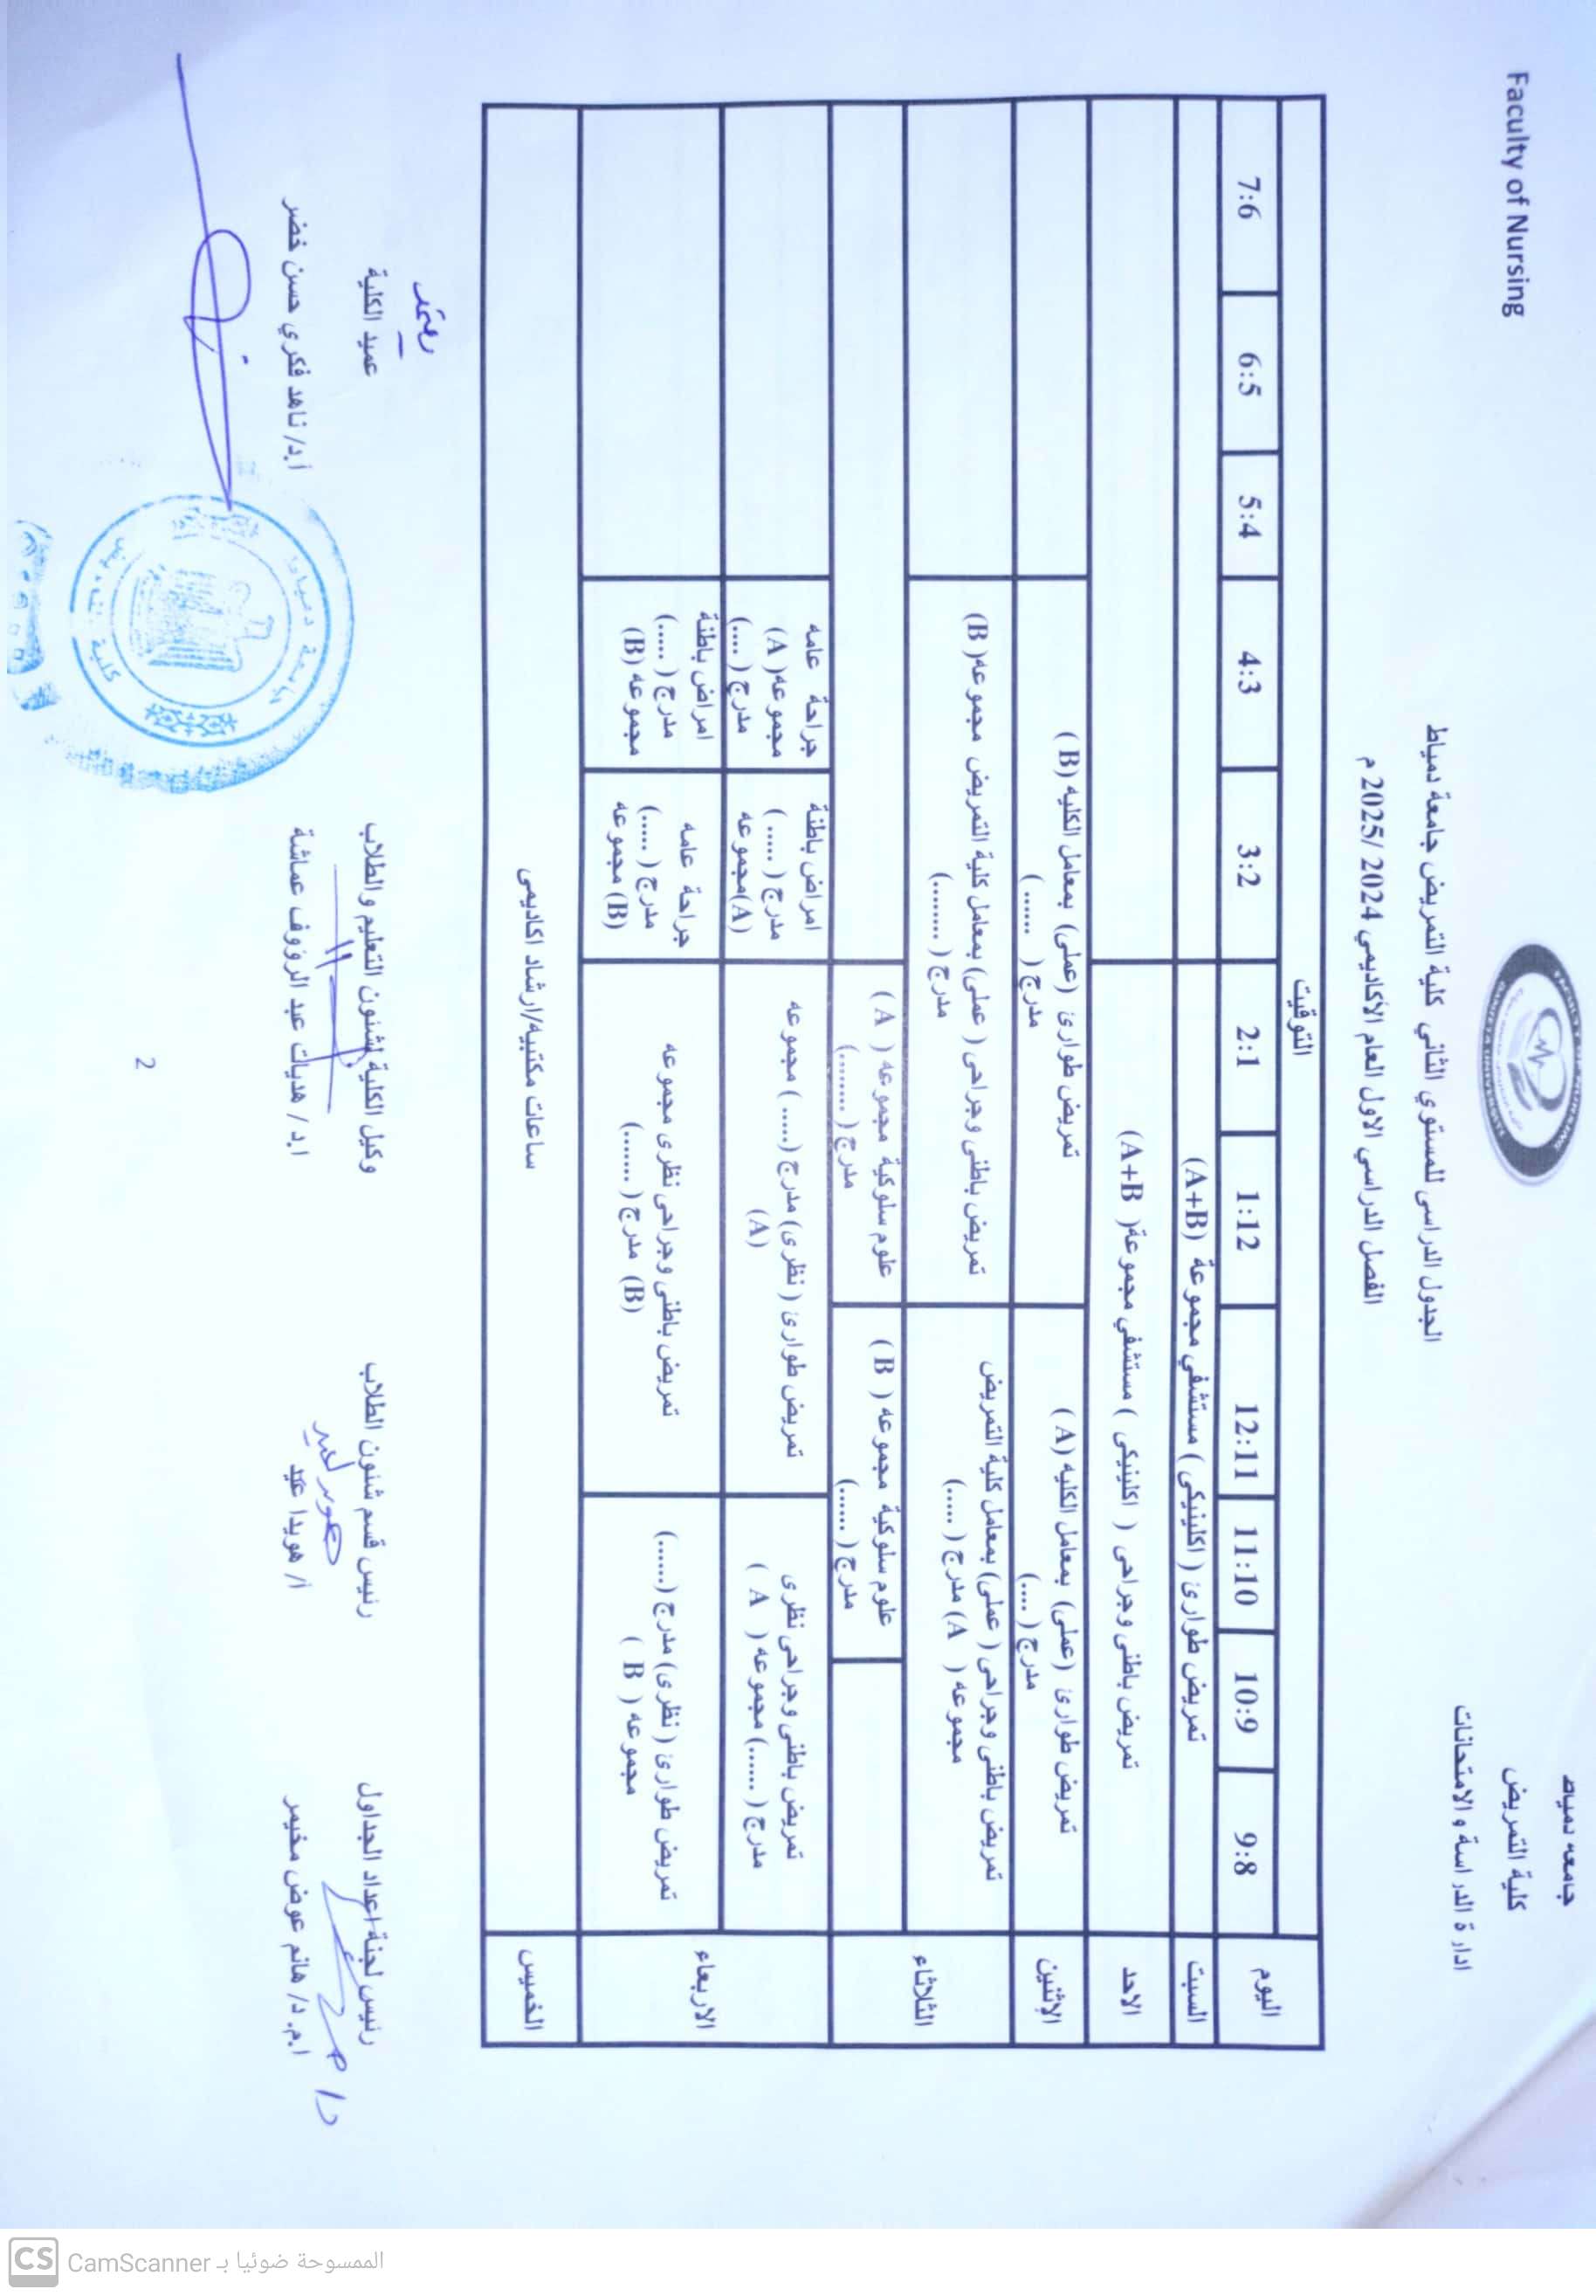 جامعه دمياط
كلية التمريض
ادارة الدراسة والامتحانات
Faculty of Nursing
الجدول الدراسى للمستوي الثاني كلية التمريض جامعة دمياط
الفصل الدراسي الاول العام الأكاديمي 2024 /2025 م
التوقيت
اليوم
9:8
10:9
11:10
12:11
1:12
2:1
3:2
4:3
5:4
6:5
7:6
السبت
تمريض طوارئ ( اكلينيكى ) مستشفي مجموعة (A+B)
الاحد
تمريض باطنى وجراحى ( اكلينيكى ) مستشفي مجموعة( A+B)
الإثنين
تمريض طوارئ (عملى) بمعامل الكليه (A )
مدرج ( ....)
تمريض طوارئ (عملى) بمعامل الكليه (B )
مدرج ( ...... )
الثلاثاء
تمريض باطنى وجراحى ( عملى) بمعامل كلية التمريض
مجموعه ( A) مدرج ( .....)
تمريض باطنى وجراحى ( عملى) بمعامل كلية التمريض مجموعه( B)
مدرج ( ........)
علوم سلوكية مجموعه ( B )
مدرج ( ......)
علوم سلوكية مجموعه ( A )
مدرج ( ........)
الاربعاء
تمريض باطنى وجراحى نظرى
مدرج ( ......) مجموعه ( A )
تمريض طوارئ ( نظرى) مدرج (.....) مجموعه
(A)
امراض باطنة
مدرج ( ..... )
(A)مجموعه
جراحة عامه
مجموعه( A)
مدرج ( ....)
تمريض طوارئ ( نظرى) مدرج (......)
مجموعه ( B )
تمريض باطنى وجراحى نظرى مجموعه
(B) مدرج ( .......)
جراحة عامه
مدرج ( .....)
(B) مجموعه
امراض باطنة
مدرج ( .....)
مجموعه (B)
الخميس
ساعات مكتبيه/ارشاد اكاديمى
يعتمد
رئيس لجنة اعداد الجداول
رئيس قسم شئون الطلاب
وكيل الكلية لشئون التعليم والطلاب
عميد الكلية
ا.م. د/ هانم عوض مخيمر
أ/ هويدا عيد
ا.د / هديات عبد الرؤوف عماشة
أ.د/ ناهد فكري حسن خضر
2
CS CamScanner الممسوحة ضوئيا بـ